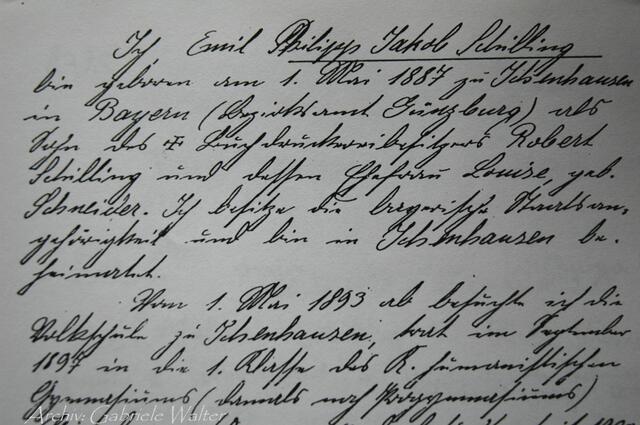 Ich, Emil Philipp Jakob Schilling
bin geboren am 1. Mai 1887 zu Ichenhausen
in Bayern (Bezirksamt Günzburg) als
Sohn des ✝ Buchdruckereibesitzers Robert
Schilling und dessen Ehefrau Louise, geb.
Schneider. Ich besitze die bayerische Staatsan-
gehörigkeit und bin in Ichenhausen be-
heimatet.
Vom 1. Mai 1893 ab besuchte ich die
Volksschule zu Ichenhausen, trat im September
1897 in die 1. Klasse des K. humanistischen
Gymnasiums (damals noch Progymnasiums)
Archiv: Gabriele Walter